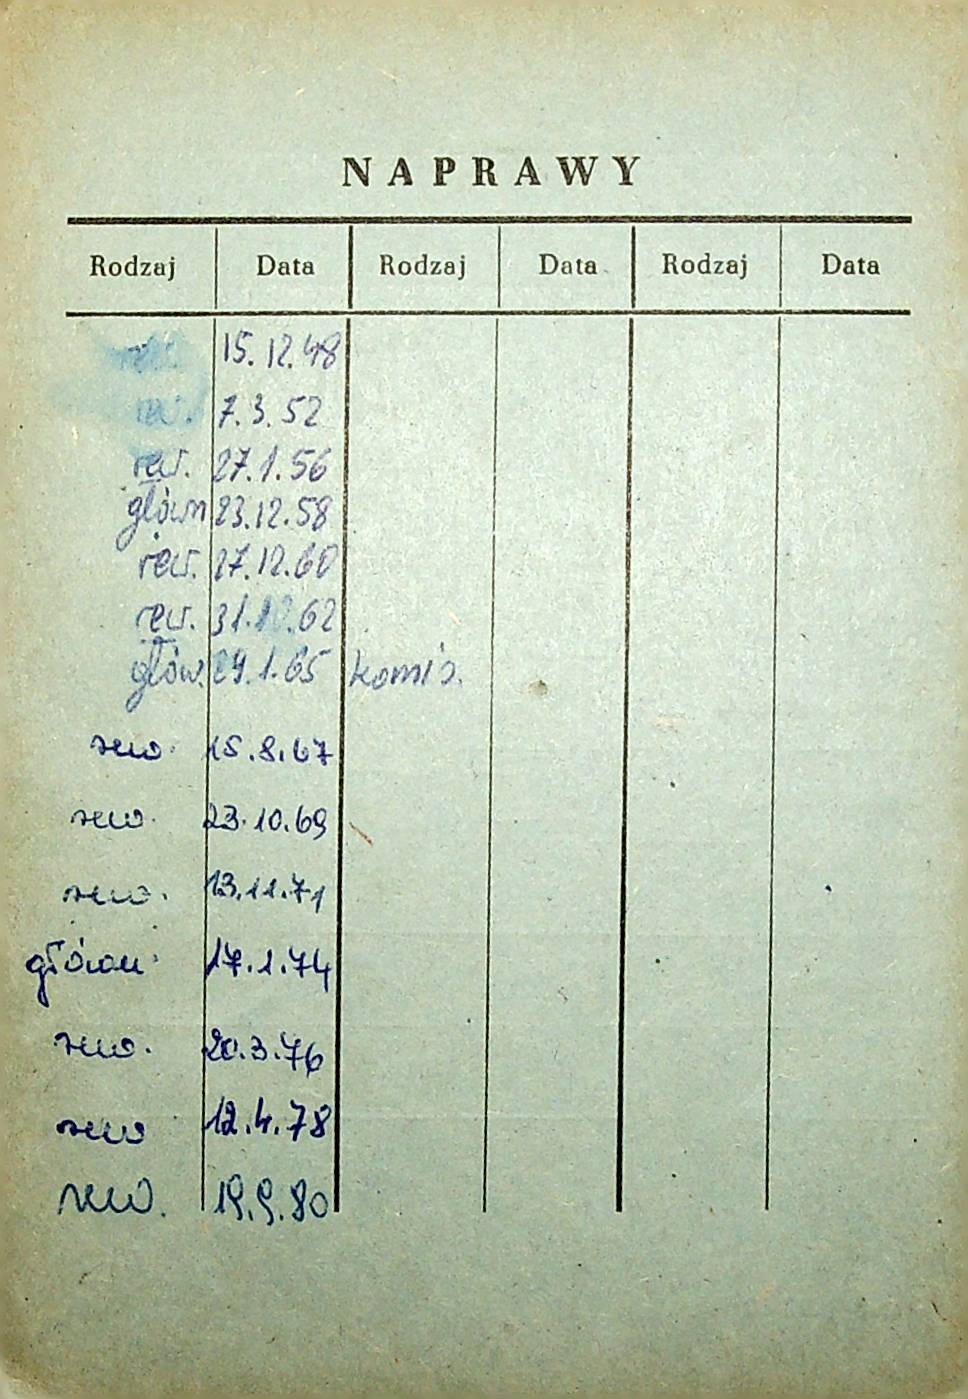 NAPRAWY
Rodzaj Data Rodzaj Data Rodzaj Data
15.12.48
rew. 7.3.52
rew. 27.1.56
główn 23.12.58
rew. 27.12.60
rew. 31.10.62
głów. 29.1.65 komis.
rew. 15.8.67
rew. 23.10.69
rew. 13.11.71
główn. 17.1.74
rew. 20.3.76
rew 12.4.78
rew. 19.9.80